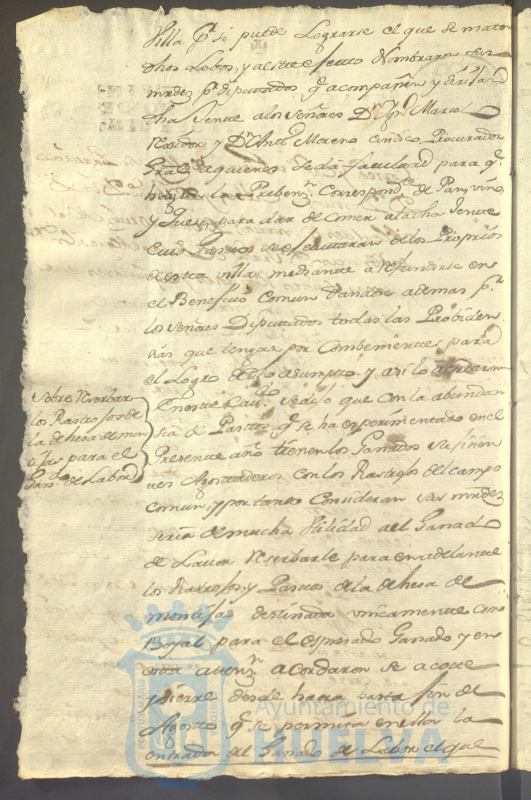 Villa qe. si puede Lograrse el que se maten
dhos Lobos, y a este efecto Nombraron sus
mrdez pr. diputados qe. acompañen y dirijan
dha Jente a los Señores Dn. Ygno. Maciel
Rexidor y Dn. Anto. Moreno Sindico Procurador
Gral. a quienes se da facultad para qe.
hagan la Preben.n Correspondte. de Pan, vino
y queso para dar de comer a la dha Jente
Cuios Gastos se ejecutaran de los Propios
de esta villa mediante a refundirse en
el Beneficio Comun dandose ademas pr.
los señores Diputados todas las Probiden
cias que tengan por Combenientes para
el Logro de dho asunpto y asi lo acordaron
Sobre Reserbar
los Rastrojos de
la dehesa de mon
tijas para el
Gando. de Labor
En este Cavdo. se dijo que con la abundan
sia de Pastos qe. se ha experimentado en el
Presente año tienen los Ganados
Agostaderos con los Rastrojos del campo
comun, y por tanto Consideran sus mrdez
seria de mucha Utilidad al Ganado
de Lavor Reserbarle para en adelante
los Rastrojos y Pastos de la dehesa de
montijas destinada unicamente como
Boyal para el expresado Ganado y en
esta atenn. acordaron se acote
y sierre desde haora hasta fin de
Agosto qe. se permita en ella la
entrada del Ganado de Labor el que
Ayuntamiento de
HUELVA